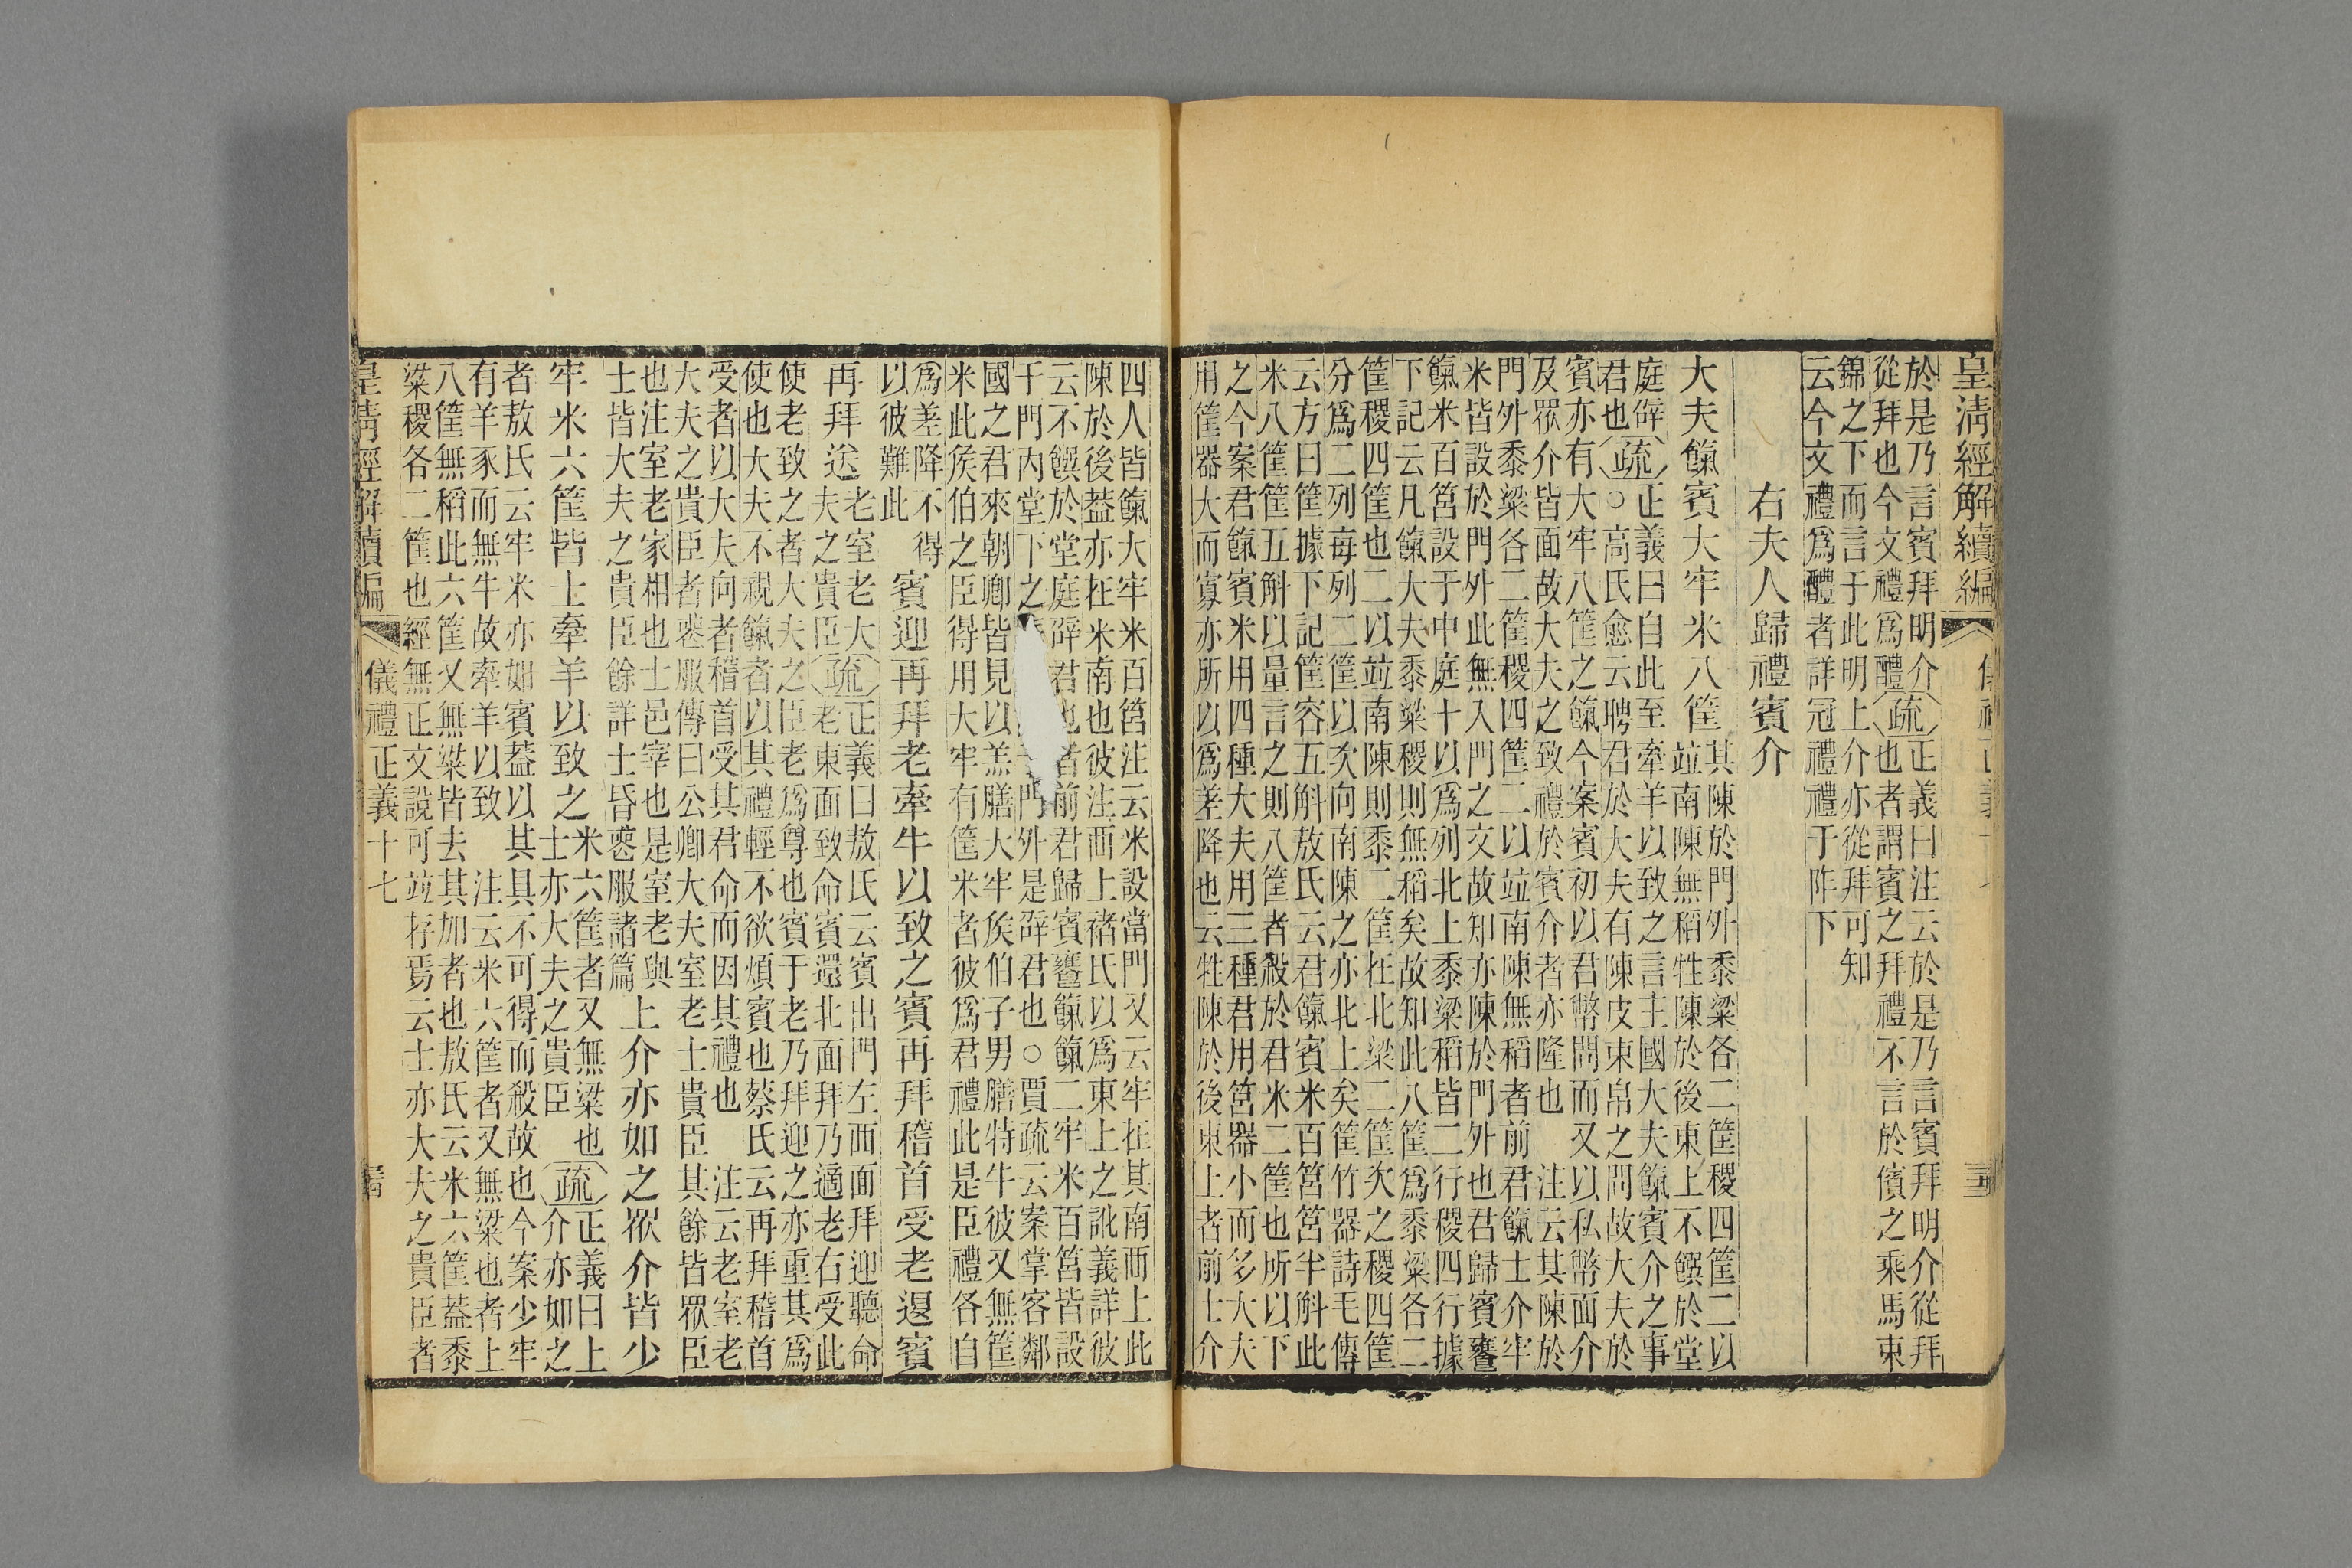 皇清經解續編
於是乃言賓拜明介從拜也今文禮爲醴
疏
正義曰注云於是乃言賓拜明介從拜
也者謂賓之拜禮不言於儐之乘馬束
錦之下而言于此明上介亦從拜可知
云今文禮爲醴者詳冠禮禮于阼下
右夫人歸禮賓介
大夫餼賓大牢米八筐
其陳於門外黍粱各二筐稷四筐二以
竝南陳無稻牲陳於後東上不饌於堂
庭辟君也
疏
○正義曰自此至牽羊以致之言主國大夫餼賓介之事
高氏愈云聘君於大夫有陳皮束帛之問故大夫於
賓亦有大牢八筐之餼今案賓初以君幣問而又以私幣面介
及眾介皆面故大夫之致禮於賓介者亦隆也　注云其陳於
門外黍粱各二筐稷四筐二以竝南陳無稻者前君餼士介牢
米皆設於門外此無入門之文故知亦陳於門外也君歸賓饔
餼米百筥設于中庭十以爲列北上黍粱稻皆二行稷四行據
下記云凡餼大夫黍粱稷則無稻矣故知此八筐爲黍粱各二
筐稷四筐也二以竝南陳則黍二筐在北粱二筐次之稷四筐
分爲二列每列二筐以次向南陳之亦北上矣筐竹器詩毛傳
云方曰筐據下記筐容五斛敖氏云君餼賓米百筥筥半斛此
米八筐筐五斛以量言之則八筐者殺於君米二筐也所以下
之今案君餼賓米用四種大夫用三種君用筥器小而多大夫
用筐器大而寡亦所以爲差降也云牲陳於後東上者前士介
四人皆餼大牢米百筥注云米設當門又云牢在其南西上此
陳於後蓋亦在米南也彼注西上褚氏以爲東上之訛義詳彼
云不饌於堂庭辟君也者前君歸賓饔餼餼二牢米百筥皆設
于門內堂下之門外是辟君也○賈疏云案掌客鄰
國之君來朝卿皆見以羔膳大牢矦伯子男膳特牛彼又無筐
米此矦伯之臣得用大牢有筐米者彼爲君禮此是臣禮各自
爲差降不得
以彼難此
賓迎再拜老牽牛以致之賓再拜稽首受老退賓
再拜送
老室老大
夫之貴臣
疏
正義曰敖氏云賓出門左西面拜迎聽命
老東面致命賓還北面拜乃適老右受此
使老致之者大夫之臣老爲尊也賓于老乃拜迎之亦重其爲
使也大夫不親餼者以其禮輕不欲煩賓也蔡氏云再拜稽首
受者以大夫向者稽首受其君命而因其禮也　注云老室老
大夫之貴臣者喪服傳曰公卿大夫室老士貴臣其餘皆眾臣
也注室老家相也士邑宰也是室老與
士皆大夫之貴臣餘詳士昏喪服諸篇
上介亦如之眾介皆少
牢米六筐皆士牽羊以致之
米六筐者又無粱也
士亦大夫之貴臣
疏
正義曰上
介亦如之
者敖氏云牢米亦如賓蓋以其具不可得而殺故也今案少牢
有羊豕而無牛故牽羊以致　注云米六筐者又無粱也者上
八筐無稻此六筐又無粱皆去其加者也敖氏云米六筐蓋黍
粱稷各二筐也經無正文說可竝存焉云士亦大夫之貴臣者
皇清經解續編
儀禮正義十七